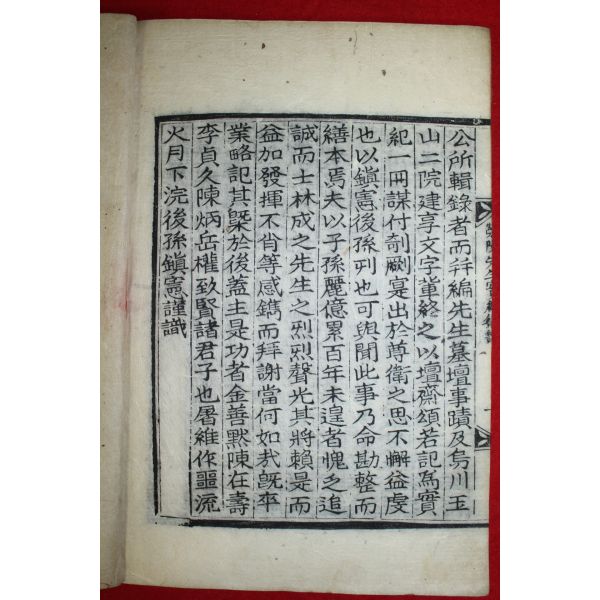 公所輯錄者而幷編先生墓壇事蹟及烏川玉
山二院建享文字嘗終之以壇齋頌若記爲實
紀一冊謀付剞劂寔出於尊衛之思不懈益虔
也以鎭憲後孫列也可與聞此事乃命勘整而
繕本焉夫以子孫麗億累百年未遑者愧乏追
誠而士林成之先生之烈烈聲光其將賴是而
益加發揮不肖等感鐫而拜謝當何如㦲旣卒
業略記其槩於後蓋主是功者金善黙陳在壽
李貞久陳炳岳權致賢諸君子也屠維作噩流
火月下浣後孫鎭憲謹識